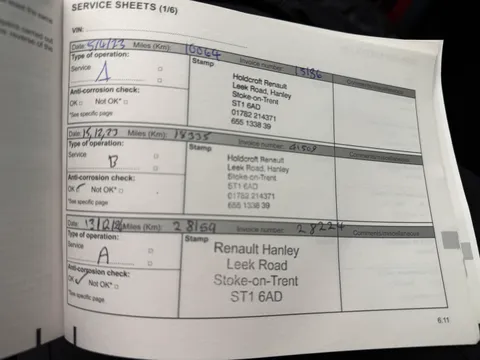 SERVICE SHEETS (1/6)
VIN:
Date: 5/6/23 Miles (Km): 10064 Invoice number: 15186 Comments/miscellaneous
Type of operation:
Stamp
Service
A
Holdcroft Renault
Leek Road, Hanley
Stoke-on-Trent
ST1 6AD
01782 214371
655 1338 39
Anti-corrosion check:
OK □ Not OK* □
*See specific page
Date: 15,12,23 Miles (Km): 18335 Invoice number: Comments/miscellaneous
Type of operation:
Stamp
Service
B
Holdcroft Renault
Leek Road, Hanley
Stoke-on-Trent
ST1 6AD
01782 214371
655 1338 39
Anti-corrosion check:
OK Not OK* □
*See specific page
Date: Miles (Km): 28159 Invoice number: 28224 Comments/miscellaneous
Type of operation:
Stamp
Service
A
Renault Hanley
Leek Road
Stoke-on-Trent
ST1 6AD
Anti-corrosion check:
OK Not OK* □
*See specific page
6.11